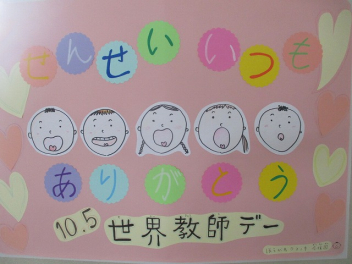 せんせい いつも
ありがとう
10.5 世界教師デー